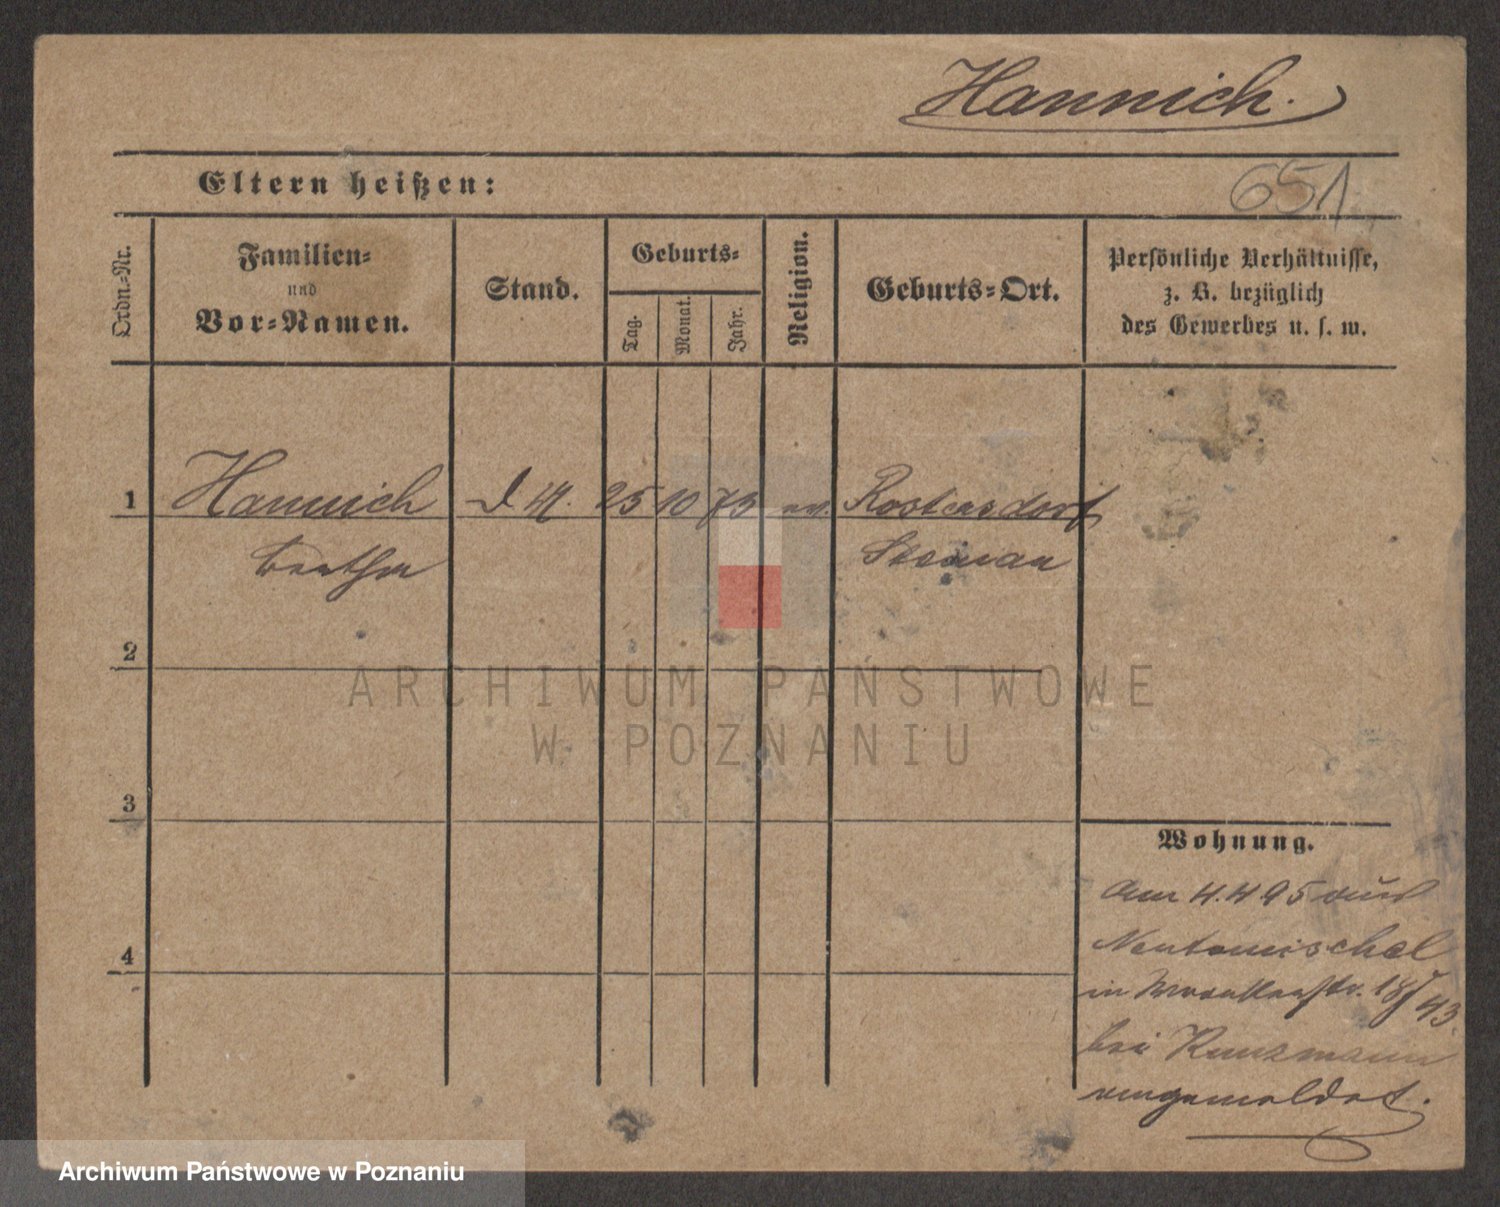 Hannich.
Eltern heißen:
651
Ordn.-Nr.
Familien-
und
Vor-Namen.
Stand.
Geburts-
Tag.
Monat.
Jahr.
Religion.
Geburts-Ort.
Persönliche Verhältnisse,
z. B. bezüglich
des Gewerbes u. s. w.
1 Hannich 25 10 73 ev. Rostersdorf
Bertha Steinau
2
3
4
Wohnung.
Am 4.4 95 aus
Neutomischel
in
bei Kunzmann
angemeldet.
ARCHIWUM PAŃSTWOWE
W POZNANIU
Archiwum Państwowe w Poznaniu